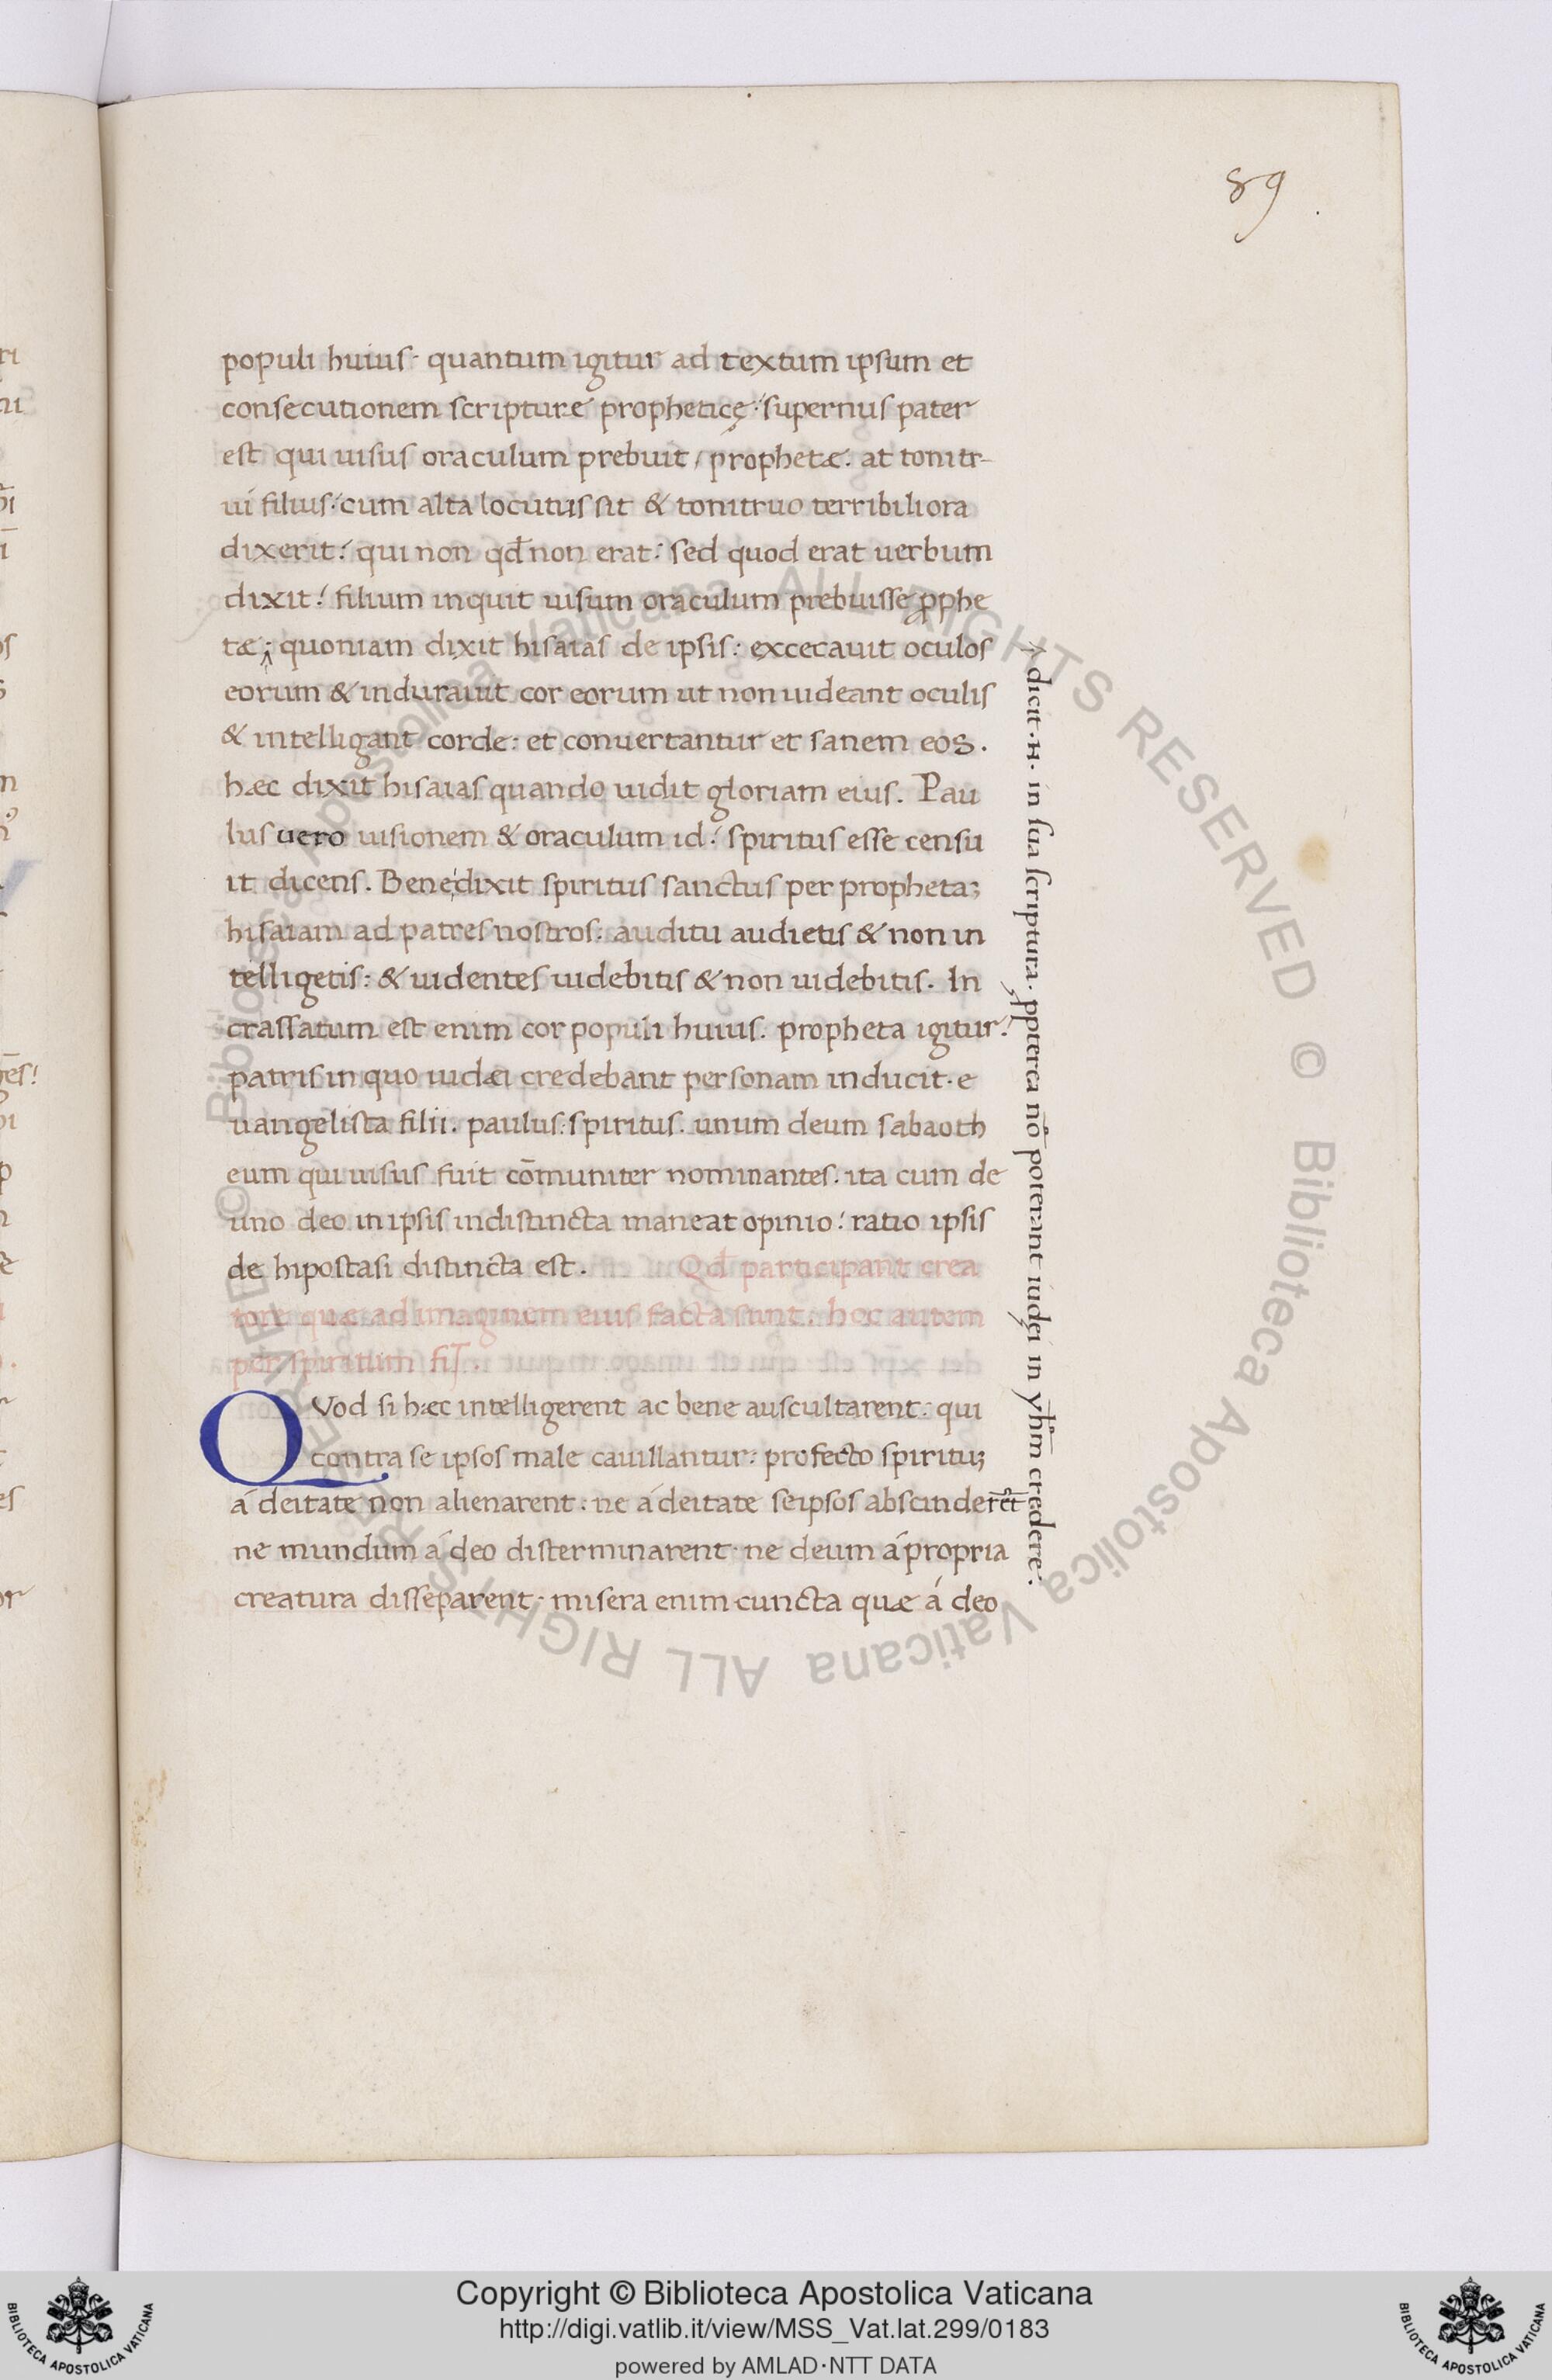 89
populi huius· quantum igitur ad textum ipsum et
consecutionem scripture prophetice: supernus pater
est qui uisus oraculum prebuit, prophetæ. at tonitr-
ui filius: cum alta locutus sit & tonitruo terribiliora
dixerit: qui non qđ non erat: sed quod erat uerbum
dixit: filium inquit uisum oraculum prebuisse ꝓphe
tæ; quoniam dixit hisaias de ipsis: excecauit oculos
eorum & indurauit cor eorum ut non uideant oculis
& intelligant corde: et conuertantur et sanem eos.
hæc dixit hisaias quando uidit gloriam eius. Pau
lus uero uisionem & oraculum id: spiritus esse censu
it dicens. Bene dixit spiritus sanctus per propheta;
hisaiam ad patres nostros: auditu audietis & non in
telligetis: & uidentes uidebitis & non uidebitis. In
crassatum est enim cor populi huius. propheta igitur:
patris in quo iudæi credebant personam inducit. e
uangelista filii. paulus: spiritus. unum deum sabaoth
eum qui uisus fuit cōmuniter nominantes. ita cum de
uno deo in ipsis indistincta maneat opinio: ratio ipsis
de hipostasi distincta est. Qđ participant crea
tori quæ ad imaginem eius facta sunt: hoc autem
per spiritum fit.
QVod si hæc intelligerent ac bene auscultarent: qui
contra se ipsos male cauillantur: profecto spiritu;
á deitate non alienarent: ne á deitate seipsos abscinderēt
ne mundum á deo disterminarent· ne deum á propria
creatura disseparent· misera enim cuncta quæ á deo
dicit .n. in sua scriptura. ꝓpterea nō poterant iudęi in yhm̄ credere.
© Biblioteca Apostolica Vaticana ALL RIGHTS RESERVED
© Biblioteca Apostolica Vaticana ALL RIGHTS RESERVED
Copyright © Biblioteca Apostolica Vaticana
http://digi.vatlib.it/view/MSS_Vat.lat.299/0183
powered by AMLAD·NTT DATA
BIBLIOTECA APOSTOLICA VATICANA
BIBLIOTECA APOSTOLICA VATICANA